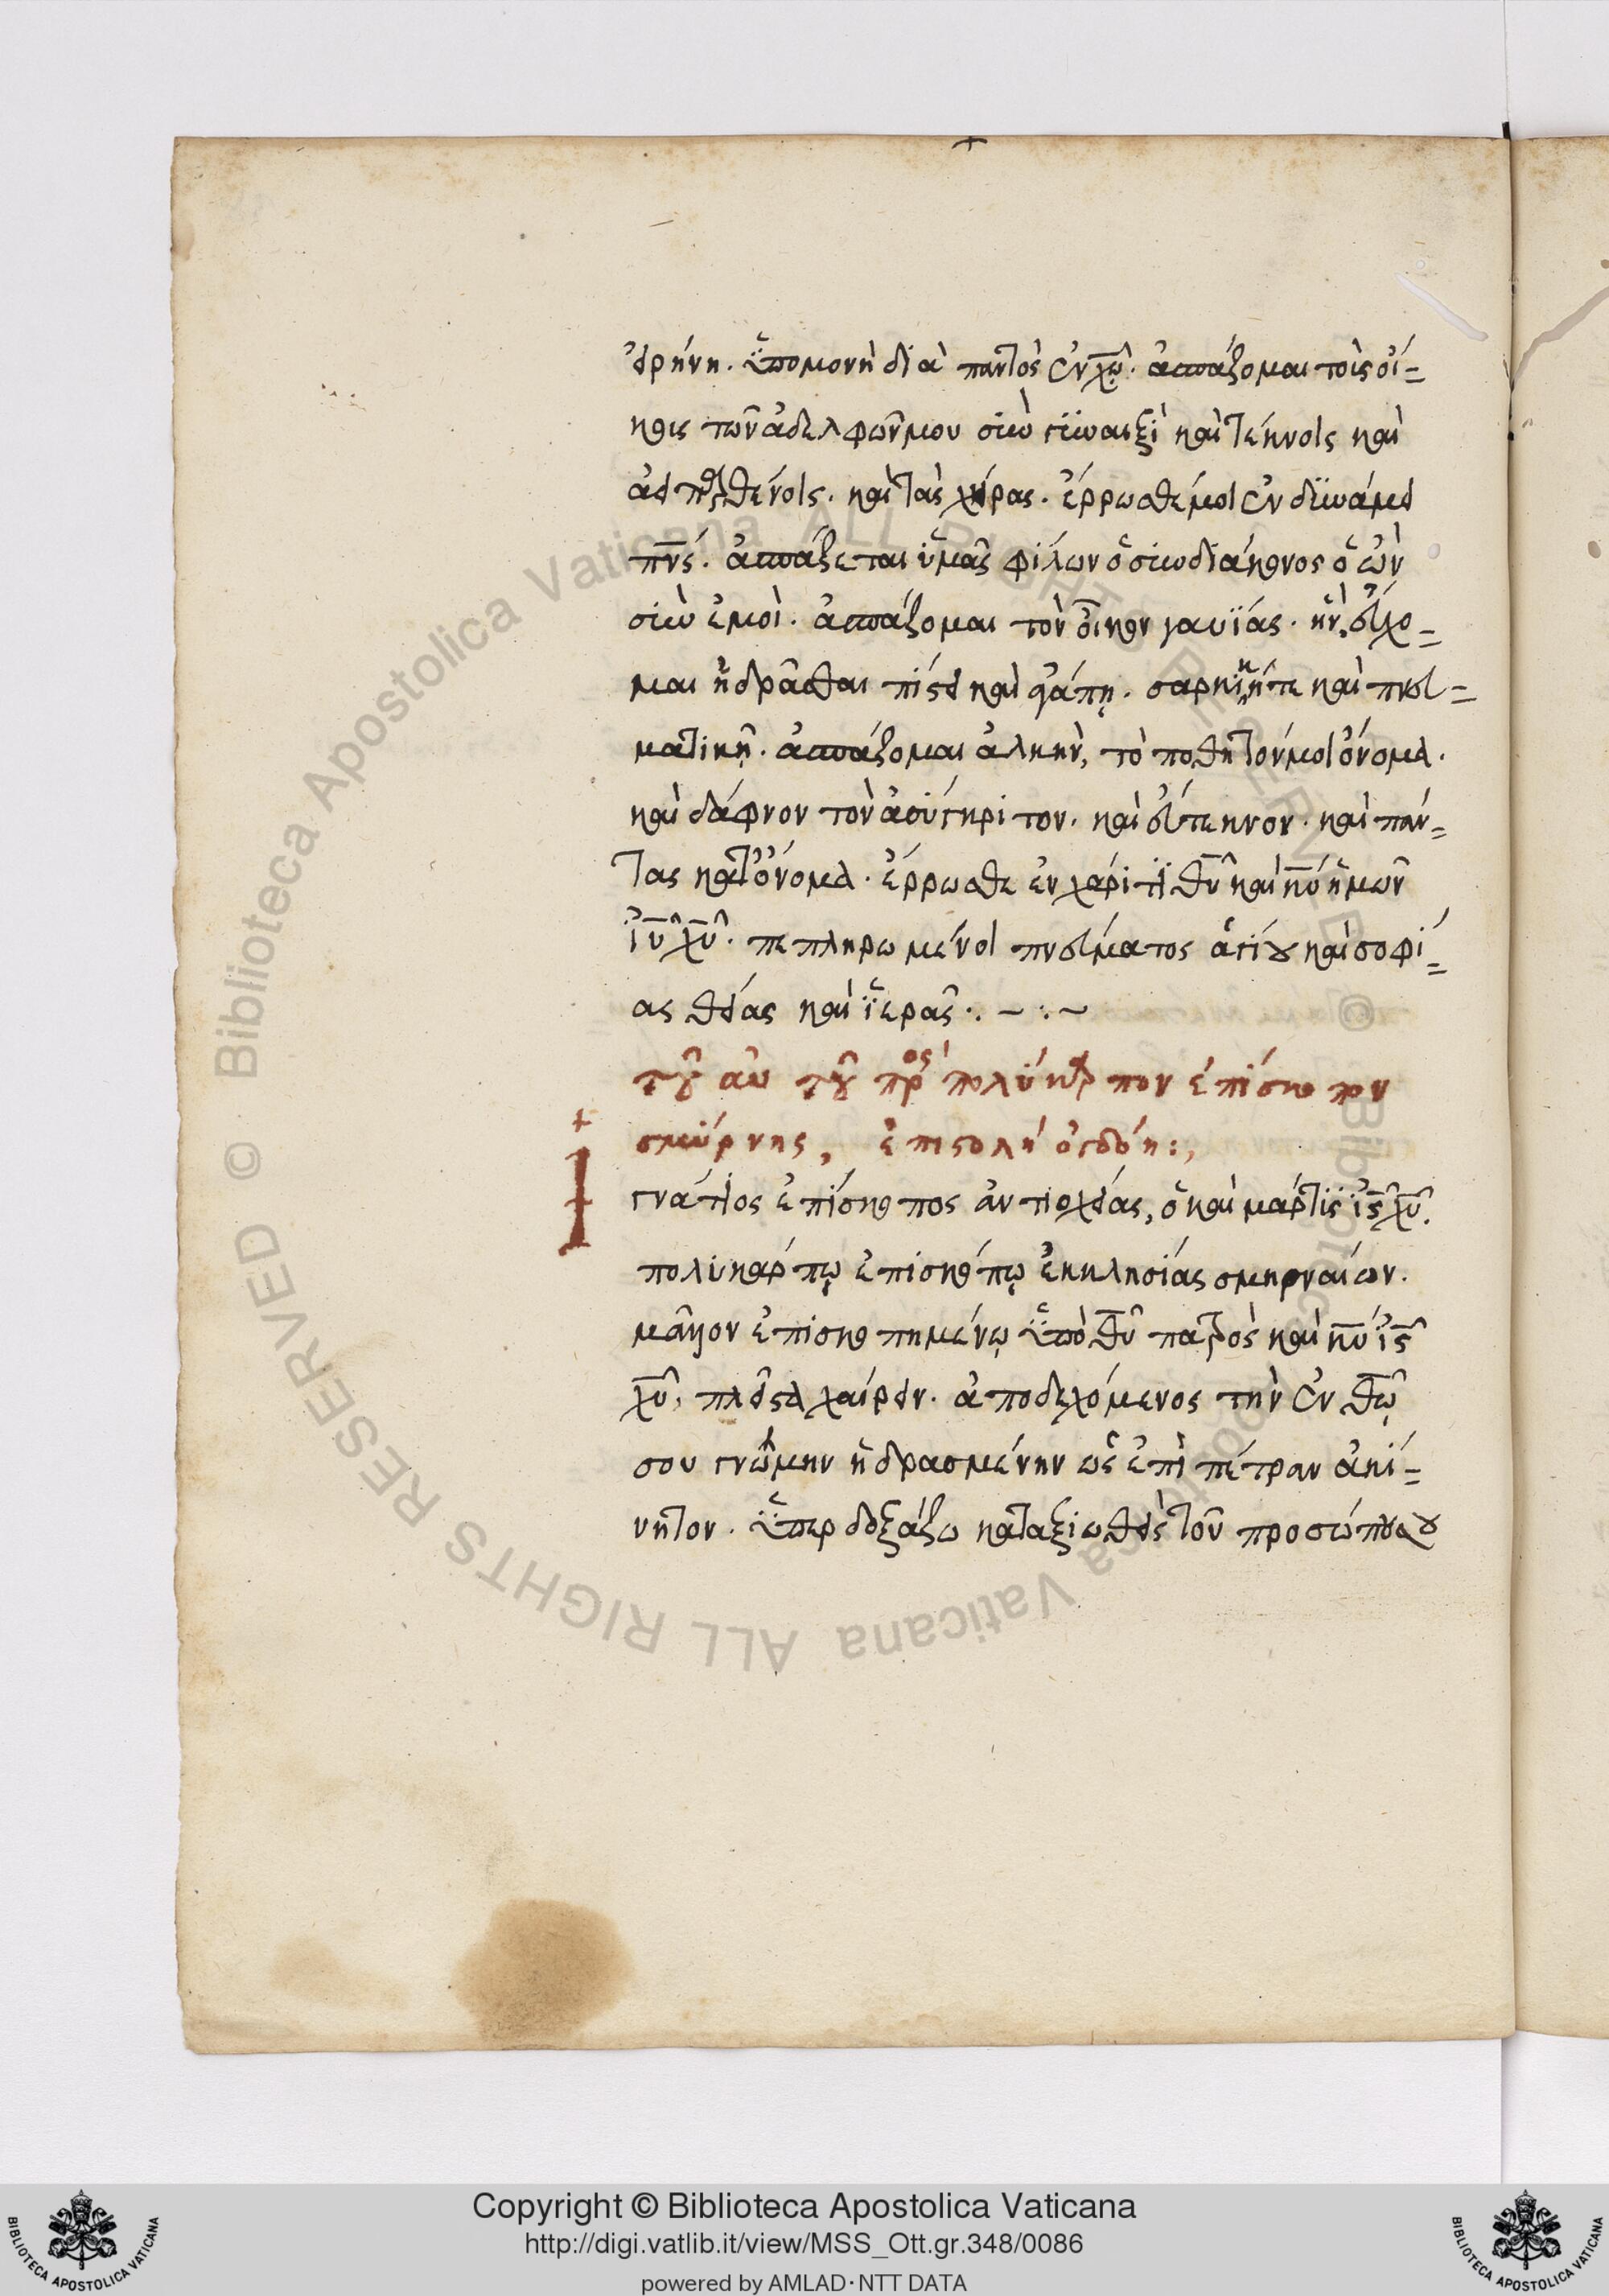 εἰρήνη. ὑπομονὴ διὰ παντὸς ἐν χῷ. ἀσπάζομαι τοὺς οἴ=
κους τῶν ἀδελφῶν μου σὺν γυναιξὶ καὶ τέκνοις καὶ
ἀειπαρθένοις. καὶ τὰς χήρας. ἔρρωσθέ μοι ἐν δυνάμει
πνς. ἀσπάζεται ὑμᾶς φίλων ὁ συνδιάκονος ὁ ὢν
σὺν ἐμοὶ. ἀσπάζομαι τὸν οἶκον γαυΐας. ἣν, εὔχο=
μαι ἡδρᾶσθαι πίστει καὶ ἀγάπῃ. σαρκικῇ τε καὶ πνευ=
ματικῇ. ἀσπάζομαι ἀλκὴν, τὸ ποθητόν μοι ὄνομα.
καὶ δάφνον τὸν ἀσύγκριτον. καὶ εὔτεκνον. καὶ πάν=
τας κατ' ὄνομα. ἔρρωσθε ἐν χάριτι θυ καὶ κυ ἡμῶν
ἰυ χυ. πεπληρωμένοι πνεύματος ἁγίου καὶ σοφί=
ας θείας καὶ ἱερᾶς ·. – :. ~
τοῦ αὐτοῦ πρὸς πολύκαρπον ἐπίσκοπον
σμύρνης, ἐπιστολὴ ὀγδόη:,
Ιγνάτιος ἐπίσκοπος ἀντιοχείας, ὁ καὶ μάρτυς ἰς χυ.
πολυκάρπῳ ἐπισκόπῳ ἐκκλησίας σμηρναίων.
μᾶλλον ἐπισκοπημένῳ ὑπὸ θυ πατρὸς καὶ κυ ἰς
χυ, πλεῖστα χαίρειν. ἀποδεχόμενος τὴν ἐν θῷ
σου γνώμην ἡδρασμένην ὡς ἐπὶ πέτραν ἀκί=
νητον. ὑπερδοξάζω καταξιωθεὶς τοῦ προσώπου σου
Copyright © Biblioteca Apostolica Vaticana
http://digi.vatlib.it/view/MSS_Ott.gr.348/0086
powered by AMLAD·NTT DATA
BIBLIOTECA APOSTOLICA VATICANA
BIBLIOTECA APOSTOLICA VATICANA
© Biblioteca Apostolica Vaticana ALL RIGHTS RESERVED © Biblioteca Apostolica Vaticana ALL RIGHTS RESERVED